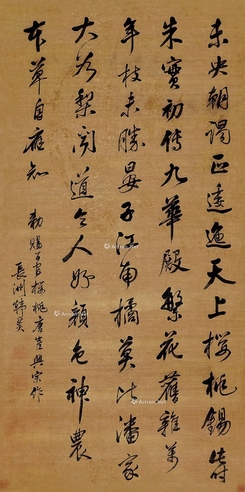 未央朝謁正逶迤天上櫻桃錫此時
朱實初傳九華殿繁花舊雜萬
年枝未勝晏子江南橘莫比潘家
大谷梨聞道令人好顏色神農
本草自應知
勅賜百官櫻桃唐崔興宗作
長洲韓菼